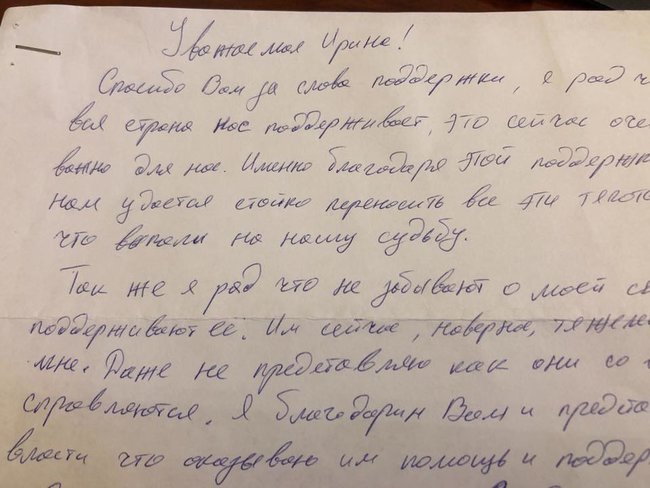 Уважаемая Ирина!
Спасибо Вам за слова поддержки, я рад ч
вся страна нас поддерживает, это сейчас оче
важно для нас. Именно благодаря этой поддержк
нам удается стойко переносить все эти тягот
что выпали на нашу судьбу.
Так же я рад что не забывают о моей се
поддерживают ее. Им сейчас, наверна, тяжеле
мне. Даже не представляю как они со
справляются. Я благодарин Вам и предста
власти что оказываю им помощь и поддер